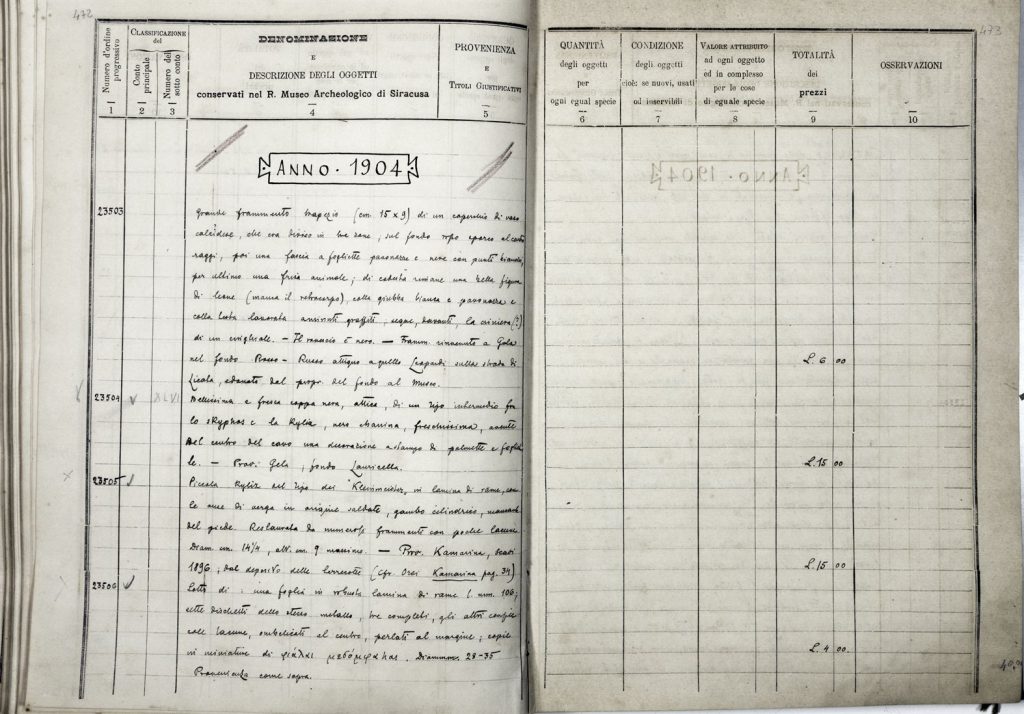 472
Numero d'ordine progressivo
CLASSIFICAZIONE del
Conto principale
Numero del sotto conto
DENOMINAZIONE
E
DESCRIZIONE DEGLI OGGETTI
conservati nel R. Museo Archeologico di Siracusa
PROVENIENZA
E
TITOLI GIUSTIFICATIVI
1 2 3 4 5
ANNO · 1904
23503 Grande frammento trapezio (cm. 15 x 9) di un coperchio di vaso
calcidese, che era diviso in tre zone, sul fondo rosso
raggi, poi una fascia a fogliette paonazze e nere con punti bianchi,
per ultimo una fascia animale; di codesta rimane una bella figura
di leone (manca il retrocorpo), colla giubba bianca e paonazza e
colla testa lavorata graffiti, segue, davanti, la criniera (?)
di un cinghiale. — Il rovescio è nero. — Framm. rinvenuto a Gela
nel fondo - Russo attiguo a quello Leopardi sulla strada di
Licata, donato dal propr. del fondo al Museo.
23504 XLVI Bellissima e fresca coppa nera, attica, di un tipo intermedio fra
lo skyphos e la kylix, nero, freschissima, avente
nel centro del cavo una decorazione a stampo di palmette e
le. — Prov. Gela, fondo Lauricella.
23505 Piccola kylix del tipo dei Kleinmeister, in lamina di rame, con
le anse di verga in origine saldate, gambo cilindrico, mancante
del piede. Restaurata da numerosi frammenti con poche lacune
Diam. cm. 14 1/4, alt. cm. 9 — Prov. Kamarina, scavi
1896; dal deposito delle terrecotte (cfr. Orsi Kamarina pag. 34)
23506 Lotto di: una foglia in robusta lamina di rame l. mm. 106;
sette dischetti dello stesso metallo, tre completi, gli altri
con lacune, ombelicati al centro, perlati al margine; copie
in miniatura di φιάλαι Diam. mm. 28-35
Provenienza come sopra.
473
QUANTITÀ
degli oggetti
per
ogni egual specie
CONDIZIONE
degli oggetti
cioè: se nuovi, usati
od inservibili
VALORE ATTRIBUITO
ad ogni oggetto
ed in complesso
per le cose
di eguale specie
TOTALITÀ
dei
prezzi
OSSERVAZIONI
6 7 8 9 10
L. 6 00
L. 15 00
L. 15 00
L. 4 00